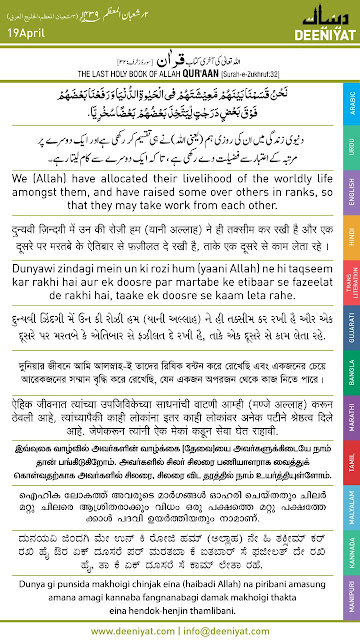 ۲/شعبان المعظم ۱۴۳۹ھ
19April
دینیات
DEENIYAT
اللہ تعالیٰ کی آخری کتاب قرآن
THE LAST HOLY BOOK OF ALLAH QUR'AAN [Surah-e-Zukhruf:32]
نَحْنُ قَسَمْنَا بَيْنَهُمْ مَعِيْشَتَهُمْ فِي الْحَيٰوةِ الدُّنْيَا وَرَفَعْنَا بَعْضَهُمْ
فَوْقَ بَعْضٍ دَرَجٰتٍ لِّيَتَّخِذَ بَعْضُهُمْ بَعْضًا سُخْرِيًّا.
ARABIC
دنیوی زندگی میں ان کی روزی ہم (یعنی اللہ) نے ہی تقسیم کر رکھی ہے اور ایک دوسرے پر
مرتبہ کے اعتبار سے فضیلت دے رکھی ہے، تاکہ ایک دوسرے سے کام لیتا رہے۔
URDU
We (Allah) have allocated their livelihood of the worldly life
amongst them, and have raised some over others in ranks, so
that they may take work from each other.
ENGLISH
दुन्यवी ज़िन्दगी में उन की रोजी हम (यानी अल्लाह) ने ही तक्सीम कर रखी है और एक
दूसरे पर मरतबे के ऐतिबार से फ़जीलत दे रखी है, ताके एक दूसरे से काम लेता रहे ।
HINDI
Dunyawi zindagi mein un ki rozi hum (yaani Allah) ne hi taqseem
kar rakhi hai aur ek doosre par martabe ke etibaar se fazeelat
de rakhi hai, taake ek doosre se kaam leta rahe.
TRANS
LITERATION
દુન્યવી ઝિંદગી મેં ઉન કી રોઝી હમ (યાની અલ્લાહ) ને હી તકસીમ કર રખી હૈ ઔર એક
દૂસરે પર મરતબે કે એતિબાર સે ફઝીલત દે રખી હૈ, તાકે એક દૂસરે સે કામ લેતા રહે.
GUJARATI
দুনিয়ার জীবনে আমি আলহাহ-ই তাদের রিযিক বন্টন করে রেখেছি এবং একজনের চেয়ে
আরেকজনের সম্মান বৃদ্ধি করে রেখেছি, যেন একজন অপরজন থেকে কাজ নিতে পারে ।
BANGLA
ऐहिक जीवनात त्यांच्या उपजिविकेच्या साधनांची वाटणी आम्ही (मण्जे अल्लाह) करून
ठेवली आहे, त्यांच्यापैकी काही लोकांना इतर काही लोकांवर अनेक पटीने श्रेष्ठत्व दिले
आहे. जेणेकरून त्यांनी ऐक मेकां कडून सेवा घेत राहावी.
MARATHI
இவ்வுலக வாழ்வில் அவர்களின் வாழ்க்கை [தேவை]யை அவர்களுக்கிடையே நாம்
தான் பங்கீடுகிறோம். அவர்களில் சிலர் சிலரை பணியாளராக வைத்துக்
கொள்வதற்காக அவர்களில் சிலரை, சிலரை விட தரத்தில் நாம் உயர்த்தியுள்ளோம்.
TAMIL
ഐഹിക ലോകത്ത് അവരുടെ മാർഗങ്ങൾ ഓഹരി ചെയ്തതും ചിലർ
മറ്റു ചിലരെ ആശ്രിതരാക്കും വിധം ഒരു പക്ഷത്തെ മറ്റു പക്ഷത്തേ
ക്കാൾ പദവി ഉയർത്തിയതും നാമാണ്.
MALYALAM
ದುನಯವಿ ಜಿಂದಗಿ ಮೇ ಉನ್ ಕಿ ರೋಜಿ ಹಮ್ (ಅಲ್ಲಾಹ) ನೇ ಹಿ ತಕ್ಸೀಮ್ ಕರ್
ರಖಿ ಹೈ ಔರ ಏಕ್ ದೂಸರೆ ಪರ್ ಮರತಬಾ ಕೆ ಐತಬಾರ್ ಸೆ ಫಜೀಲತ್ ದೇ ರಖಿ
ಹೈ, ತಾ ಕೆ ಏಕ್ ದೂಸರೆ ಸೆ ಕಾಮ್ ಲೇತಾ ರಹೆ.
KANNADA
Dunya gi punsida makhoigi chinjak eina (haibadi Allah) na piribani amasung
amana amagi kannaba fangnanabagi damak makhoigi thakta
eina hendok-henjin thamlibani.
MANIPURI
www.deeniyat.com | info@deeniyat.com